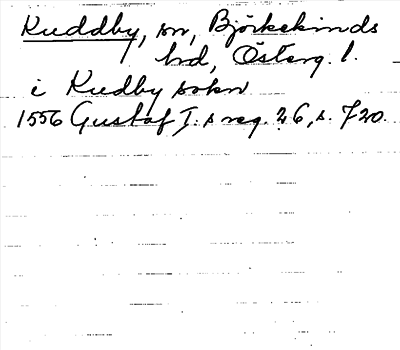 Kuddby, sn, Björkekinds
hd, Österg. l.
i Kudby sokn
1556 Gustaf I:s reg. 26, s. 720.